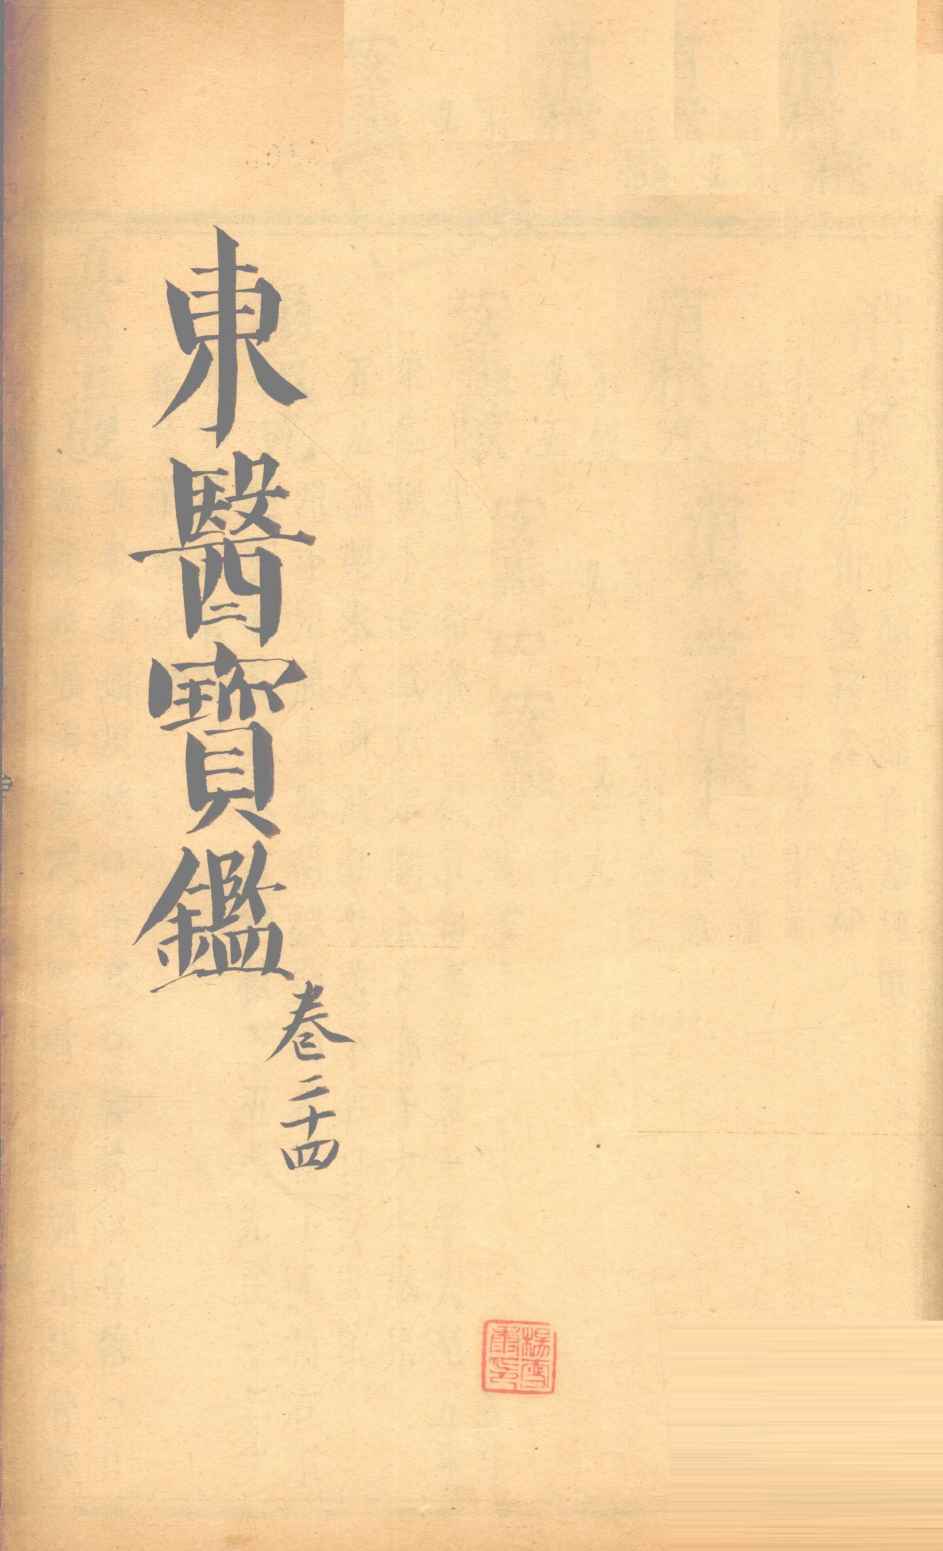 東醫寶鑑
卷二十四